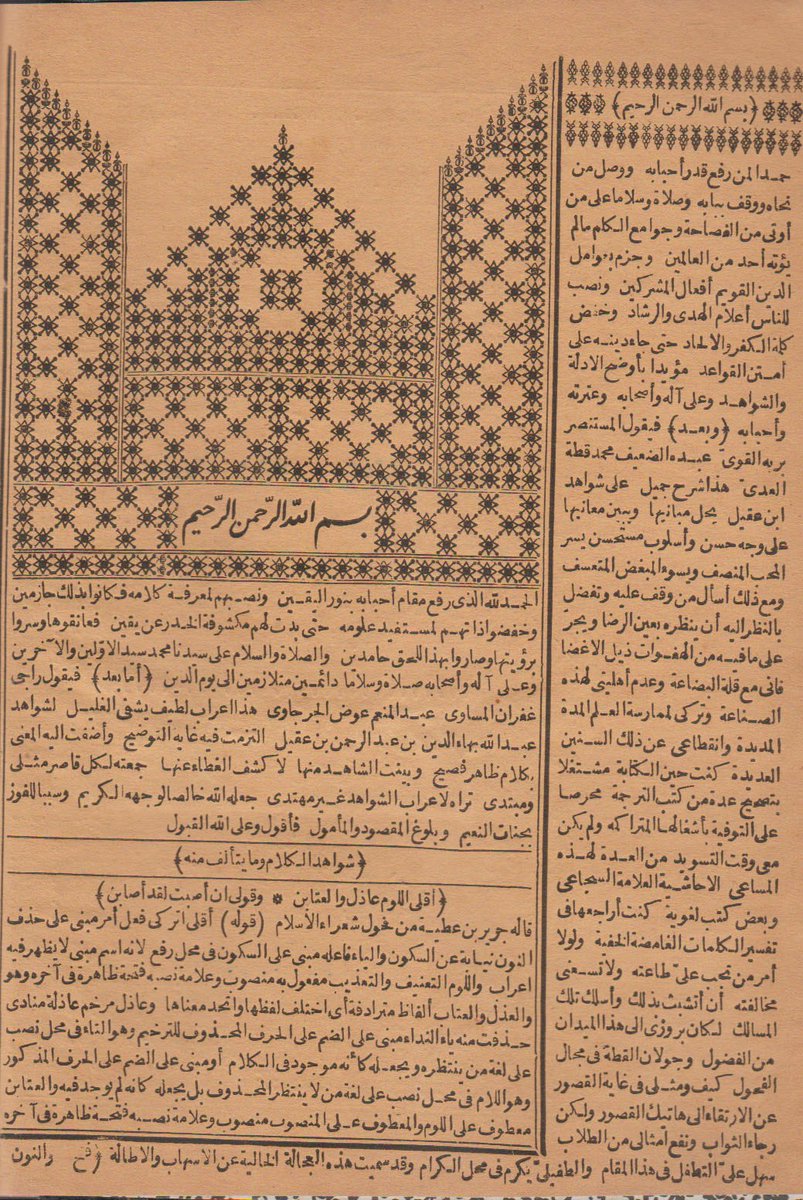 بسم الله الرحمن الرحيم
الحمد لله الذى رفع مقام أحبابه بنور اليقين ونصبهم لمعرفة كلامه فكانوا بذلك جازمين
وخفضوا ذاتهم لمستفيد علومه حتى بدت لهم مكشوفة الخدر عن يقين فعانقوها وسروا
برؤيتها وصاروا بهذا للحق حامدين والصلاة والسلام على سيدنا محمد سيد الاولين والآخرين
وعلى آله وأصحابه صلاة وسلاما دائمين متلازمين الى يوم الدين ﴿أما بعد﴾ فيقول راجى
غفران المساوى عبد المنعم عوض الجرجاوى هذا اعراب لطيف يشفى الغليل لشواهد
عبد الله بهاء الدين بن عبد الرحمن بن عقيل التزمت فيه غاية التوضيح وأضفت اليه المعنى
بكلام ظاهر فصيح وبينت الشاهد منها لا كشف الغطاء عنها جمعته لكل قاصر مثلى
ومبتدى تراه لاعراب الشواهد غير مهتدى جعله الله خالصا لوجهه الكريم وسببا للفوز
بجنات النعيم وبلوغ المقصود والمأمول فأقول وعلى الله القبول
﴿شواهد الكلام وما يتألف منه﴾
﴿أقلى اللوم عاذل والعتابن * وقولى ان أصبت لقد أصابن﴾
قاله جرير بن عطية من فحول شعراء الاسلام (قوله) أقلى اتركى فعل أمر مبنى على حذف
النون نيابة عن السكون والياء فاعله مبنى على السكون فى محل رفع لانه اسم مبنى لا يظهر فيه
اعراب واللوم التعنيف والتعذيب مفعول به منصوب وعلامة نصبه فتحة ظاهرة فى آخره وهو
والعذل والعتاب ألفاظ مترادفة أى اختلف لفظها واتحد معناها وعاذل مرخم عاذلة منادى
حذفت منه ياء النداء مبنى على الضم على الحرف المحذوف للترخيم وهو التاء فى محل نصب
على لغة من ينتظره ويجعله كأنه موجود فى الكلام أو مبنى على الضم على الحرف المذكور
وهو اللام فى محل نصب على لغة من لا ينتظر المحذوف بل يجعله كانه لم يوجد فيه والعتابن
معطوف على اللوم والمعطوف على المنصوب منصوب وعلامة نصبه فتحة ظاهرة فى آخره
﴿بسم الله الرحمن الرحيم﴾
حمدا لمن رفع قدر أحبابه ووصل من
نحاه ووقف ببابه وصلاة وسلاما على من
أوتى من الفصاحة وجوامع الكلام مالم
يؤته أحد من العالمين وجزم بعوامل
الدين القويم أفعال المشركين ونصب
للناس أعلام الهدى والرشاد وخفض
كلمة الكفر والالحاد حتى جاء دينه على
أمتن القواعد مؤيدا بأوضح الادلة
والشواهد وعلى آله وأصحابه وعترته
وأحبابه ﴿وبعد﴾ فيقول المستنصر
بربه القوى عبده الضعيف محمد قطة
العدى هذا شرح جميل على شواهد
ابن عقيل يحل مبانيها ويبين معانيها
على وجه حسن وأسلوب مستحسن يسر
المحب المنصف ويسوء المبغض المتعسف
ومع ذلك أسأل من وقف عليه وتفضل
بالنظر اليه أن ينظره بعين الرضا ويجر
على مافيه من الهفوات ذيل الاغضا
فانى مع قلة البضاعة وعدم أهليتى لهذه
الصناعة وتركى لممارسة العلم المدة
المديدة وانقطاعى عن ذلك السنين
العديدة كنت حين الكتابة مشتغلا
بتصحيح عدة من كتب الترجمة محرصا
على التوفية بأشغالها المتراكمة ولم يكن
معى وقت التسويد من العدة لهذه
المساعى الا حاشية العلامة السجاعى
وبعض كتب لغوية كنت أراجعها فى
تفسير الكلمات الغامضة الخفية ولولا
أمر من تجب على طاعته ولا تسعنى
مخالفته أن أتشبث بذلك وأسلك تلك
المسالك لكان بروزى الى هذا الميدان
من الفضول وجولان القطة فى مجال
الفحول كيف ومثلى فى غاية القصور
عن الارتقاء الى هاتيك القصور ولكن
رجاء الثواب ونفع أمثالى من الطلاب
سهل على التطفل فى هذا المقام والطفيلى يكرم فى محل الكرام وقد سميت هذه العجالة الخالية عن الاسهاب والاطالة ﴿فتح والنون